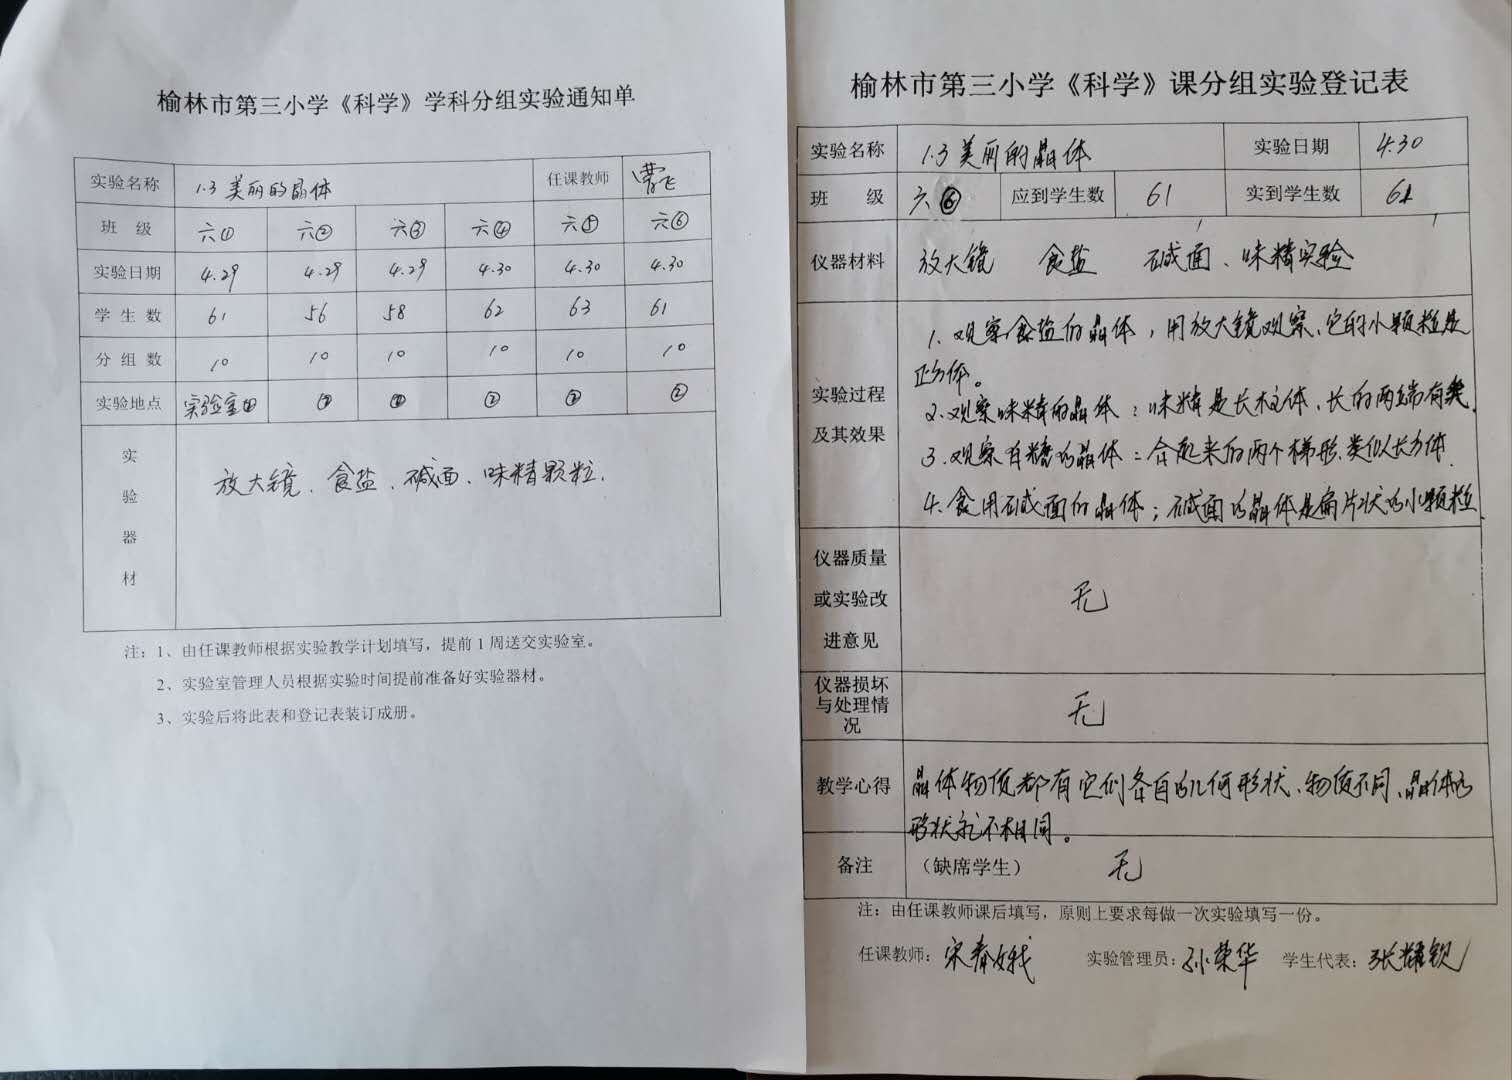 榆林市第三小学《科学》学科分组实验通知单
实验名称 1.3 美丽的晶体 任课教师
班 级 六① 六② 六③ 六④ 六⑤ 六⑥
实验日期 4.29 4.29 4.29 4.30 4.30 4.30
学 生 数 61 56 58 62 63 61
分 组 数 10 10 10 10 10 10
实验地点 实验室 ②
实验器材 放大镜、食盐、碱面、味精颗粒.
注：1、由任课教师根据实验教学计划填写，提前 1 周送交实验室。
2、实验室管理人员根据实验时间提前准备好实验器材。
3、实验后将此表和登记表装订成册。
榆林市第三小学《科学》课分组实验登记表
实验名称 1.3 美丽的晶体 实验日期 4.30
班 级 六⑥ 应到学生数 61 实到学生数 61
仪器材料 放大镜 食盐 碱面、味精实验
实验过程及其效果
1. 观察食盐的晶体，用放大镜观察、它的小颗粒是
正方体。
2. 观察味精的晶体：味精是长柱体、长的两端有尖.
3. 观察白糖的晶体：合起来的两个梯形、类似长方体.
4. 食用碱面的晶体；碱面的晶体是扁片状的小颗粒
仪器质量或实验改进意见 无
仪器损坏与处理情况 无
教学心得 晶体物质都有它们各自的几何形状、物质不同、晶体的
形状就不相同。
备注 （缺席学生） 无
注：由任课教师课后填写，原则上要求每做一次实验填写一份。
任课教师：宋春娥 实验管理员：孙荣华 学生代表：张耀